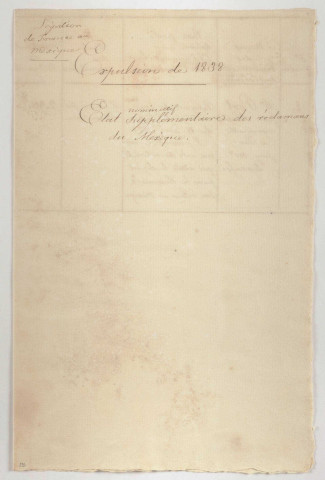 Légation
de France au
Mexique
Expulsion de 1838
nominatif
Etat supplémentaire des réclamans
du Mexique.